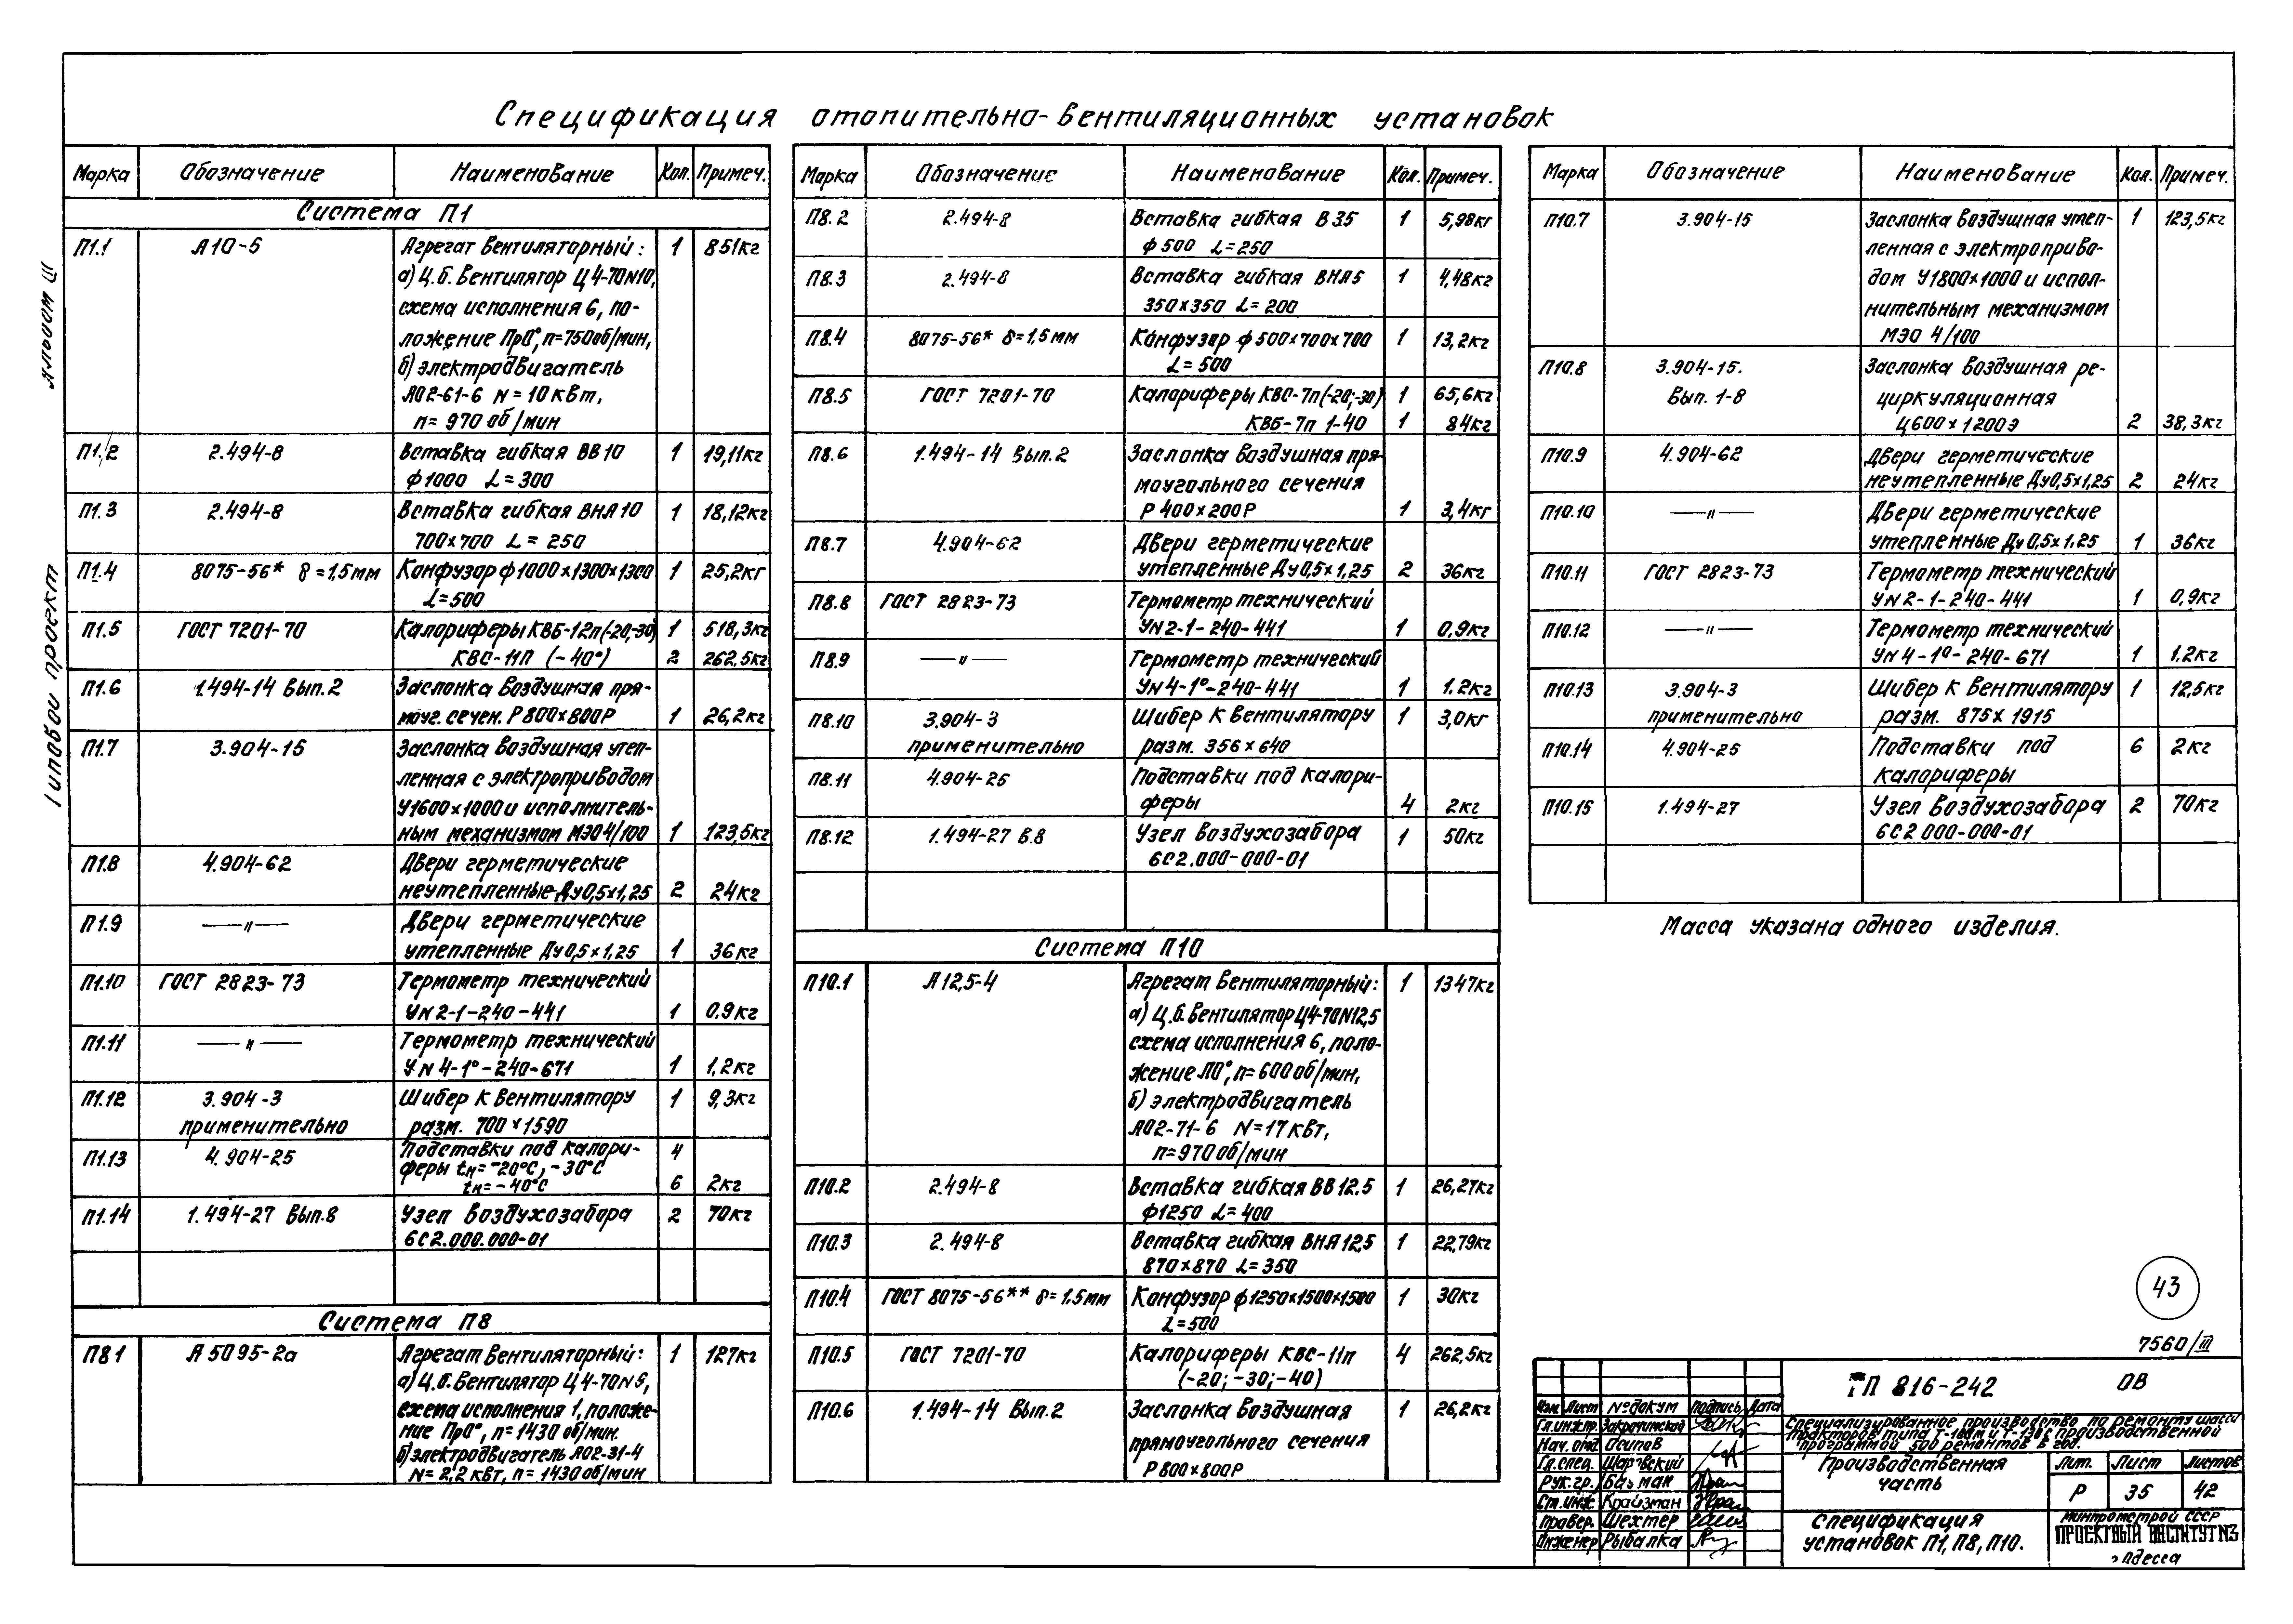 Спецификация отопительно-вентиляционных установок
Альбом III
Типовой проект
Марка Обозначение Наименование Кол. Примеч.
Система П1
П1.1 А10-5 Агрегат вентиляторный: 1 851кг
а) Ц.б. вентилятор Ц4-70N10,
схема исполнения 6, по-
ложение Пр0°, n=750об/мин,
б) электродвигатель
АО2-61-6 N=10кВт,
n=970 об/мин
П1.2 2.494-8 Вставка гибкая ВВ10 1 19,11кг
ф1000 L=300
П1.3 2.494-8 Вставка гибкая ВНА10 1 18,12кг
700х700 L=250
П1.4 8075-56* δ=1,5мм Конфузор ф1000х1300х1300 1 25,2кг
L=500
П1.5 ГОСТ 7201-70 Калориферы КВБ-12п(-20,-30) 1 518,3кг
КВС-11П (-40°) 2 262,5кг
П1.6 1.494-14 Вып.2 Заслонка воздушная пря-
моуг. сечен. Р800х800Р 1 26,2кг
П1.7 3.904-15 Заслонка воздушная утеп-
ленная с электроприводом
У1600х1000 и исполнитель-
ным механизмом МЭО4/100 1 123,5кг
П1.8 4.904-62 Двери герметические
неутепленные Ду0,5х1,25 2 24кг
П1.9 —〃— Двери герметические
утепленные Ду0,5х1,25 1 36кг
П1.10 ГОСТ 2823-73 Термометр технический
УN2-1-240-441 1 0,9кг
П1.11 —〃— Термометр технический
УN4-1°-240-671 1 1,2кг
П1.12 3.904-3 Шибер к вентилятору 1 9,3кг
применительно разм. 700х1590
П1.13 4.904-25 Подставки под калори- 4
феры tн=-20°С,-30°С
tн=-40°С 6 2кг
П1.14 1.494-27 Вып.8 Узел воздухозабора 2 70кг
6С2.000.000-01
Система П8
П8.1 А5095-2а Агрегат вентиляторный: 1 127кг
а) Ц.б. вентилятор Ц4-70N5,
схема исполнения 1, положе-
ние Пр0°, n=1430 об/мин.
б) электродвигатель АО2-31-4
N=2,2 кВт, n=1430об/мин
Марка Обозначение Наименование Кол. Примеч.
П8.2 2.494-8 Вставка гибкая В35 1 5,98кг
ф500 L=250
П8.3 2.494-8 Вставка гибкая ВНА5 1 4,48кг
350х350 L=200
П8.4 8075-56* δ=1,5мм Конфузор ф500х700х700 1 13,2кг
L=500
П8.5 ГОСТ 7201-70 Калориферы КВС-7п(-20;-30) 1 65,6кг
КВБ-7п 1-40 1 84кг
П8.6 1.494-14 Вып.2 Заслонка воздушная пря-
моугольного сечения
Р400х200Р 1 3,4кг
П8.7 4.904-62 Двери герметические
утепленные Ду0,5х1,25 2 36кг
П8.8 ГОСТ 2823-73 Термометр технический
УN2-1-240-441 1 0,9кг
П8.9 —〃— Термометр технический
УN4-1°-240-441 1 1.2кг
П8.10 3.904-3 Шибер к вентилятору 1 3,0кг
применительно разм. 356х640
П8.11 4.904-25 Подставки под калори-
феры 4 2кг
П8.12 1.494-27 В.8 Узел воздухозабора 1 50кг
6С2.000-000-01
Система П10
П10.1 А12,5-4 Агрегат вентиляторный: 1 1347кг
а) Ц.б. вентилятор Ц4-70N12,5
схема исполнения 6, поло-
жение Л0°, n=600об/мин,
б) электродвигатель
АО2-71-6 N=17кВт,
n=970об/мин
П10.2 2.494-8 Вставка гибкая ВВ12.5 1 26,27кг
ф1250 L=400
П10.3 2.494-8 Вставка гибкая ВНА12,5 1 22,79кг
870х870 L=350
П10.4 ГОСТ 8075-56** δ=1,5мм Конфузор ф1250х1500х1500 1 30кг
L=500
П10.5 ГОСТ 7201-70 Калориферы КВС-11п 4 262,5кг
(-20;-30;-40)
П10.6 1.494-14 Вып.2 Заслонка воздушная 1 26,2кг
прямоугольного сечения
Р800х800Р
Марка Обозначение Наименование Кол. Примеч.
П10.7 3.904-15 Заслонка воздушная утеп- 1 123,5кг
ленная с электроприво-
дом У1800х1000 и испол-
нительным механизмом
МЭО 4/100
П10.8 3.904-15. Заслонка воздушная ре-
Вып. 1-8 циркуляционная
Ц600х1200Э 2 38,3кг
П10.9 4.904-62 Двери герметические
неутепленные Ду0,5х1,25 2 24кг
П10.10 —〃— Двери герметические
утепленные Ду0,5х1.25 1 36кг
П10.11 ГОСТ 2823-73 Термометр технический
УN2-1-240-441 1 0,9кг
П10.12 —〃— Термометр технический
УN4-1°-240-671 1 1.2кг
П10.13 3.904-3 Шибер к вентилятору 1 12,5кг
применительно разм. 875х1915
П10.14 4.904-25 Подставки под 6 2кг
калориферы
П10.15 1.494-27 Узел воздухозабора 2 70кг
6С2.000-000-01
Масса указана одного изделия.
43
7560/III
ТП 816-242 ОВ
Изм. Лист № докум Подпись Дата
Гл.инж.пр. Закрочимский
Нач. отд. Осипов
Гл.спец. Шаровский
Рук.гр. Басман
Ст.инж. Крайзман
Провер. Шехтер
Инженер Рыбалка
Специализированное производство по ремонту шасси
тракторов типа Т-100м и Т-130 с производственной
программой 500 ремонтов в год.
Производственная
часть
Лит. Лист Листов
Р 35 42
Спецификация
установок П1, П8, П10.
Минпромстрой СССР
ПРОЕКТНЫЙ ИНСТИТУТ №3
г. Одесса